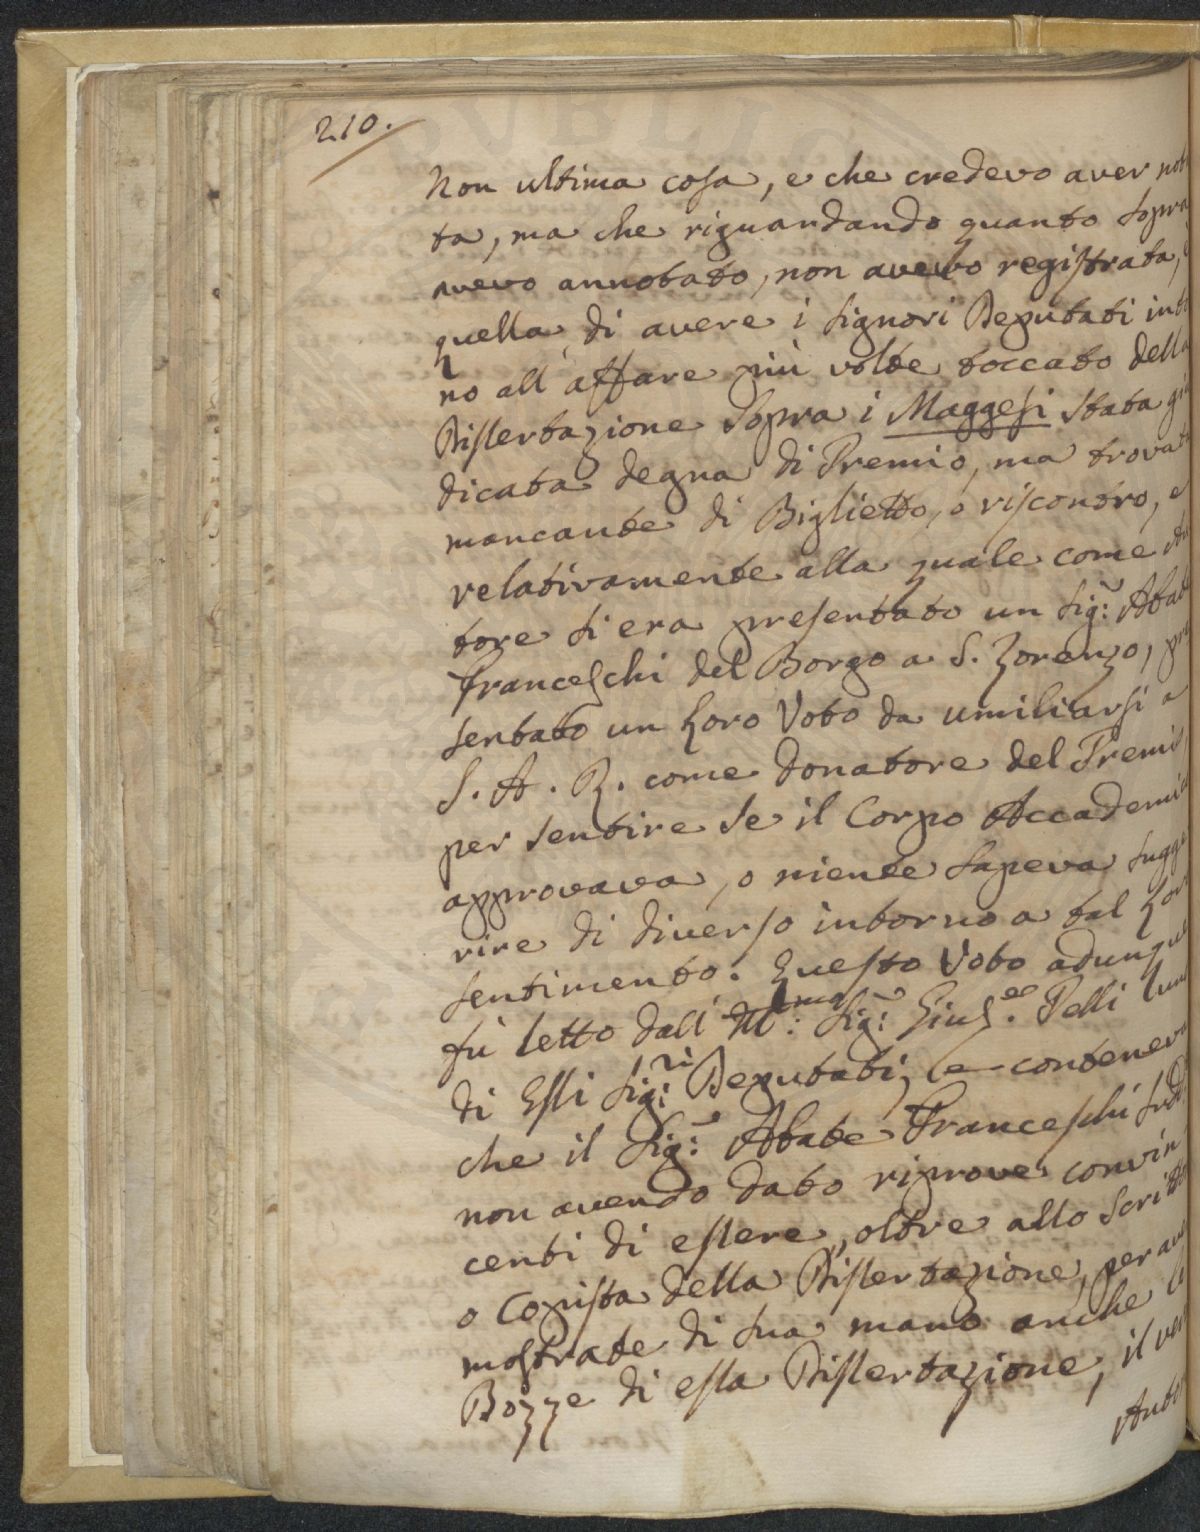 210.
Non ultima cosa, e che credevo aver nota
ta, ma che riguardando quanto sopra
avevo annotato, non avevo registrata, è
quella di avere i Signori Deputati intor
no all'affare più volte toccato della
Dissertazione sopra i Maggesi stata giu
dicata degna di Premio, ma trovata
mancante di Biglietto, o riscontro, e
relativamente alla quale come Au
tore si era presentato un Sig:re Abate
Franceschi del Borgo a S. Lorenzo, pre
sentato un Loro Voto da umiliarsi a
S. A. R. come Donatore del Premio
per sentire se il Corpo Accademico
approvava, o niente sapeva sugge
rire di diverso intorno a tal Loro
sentimento. Questo Voto adunque
fù letto dall'Ill:mo Sig:re Gius.ee Pelli uno
di Essi Sig:ri Deputati, e conteneva
che il Sig:re Abate Franceschi sudd.
non avendo dato riprove convin
centi di essere, oltre allo Scritto
o Copista della Dissertazione, per aver
mostrate di sua mano anche le
Bozze di essa Dissertazione, il vero
Auto